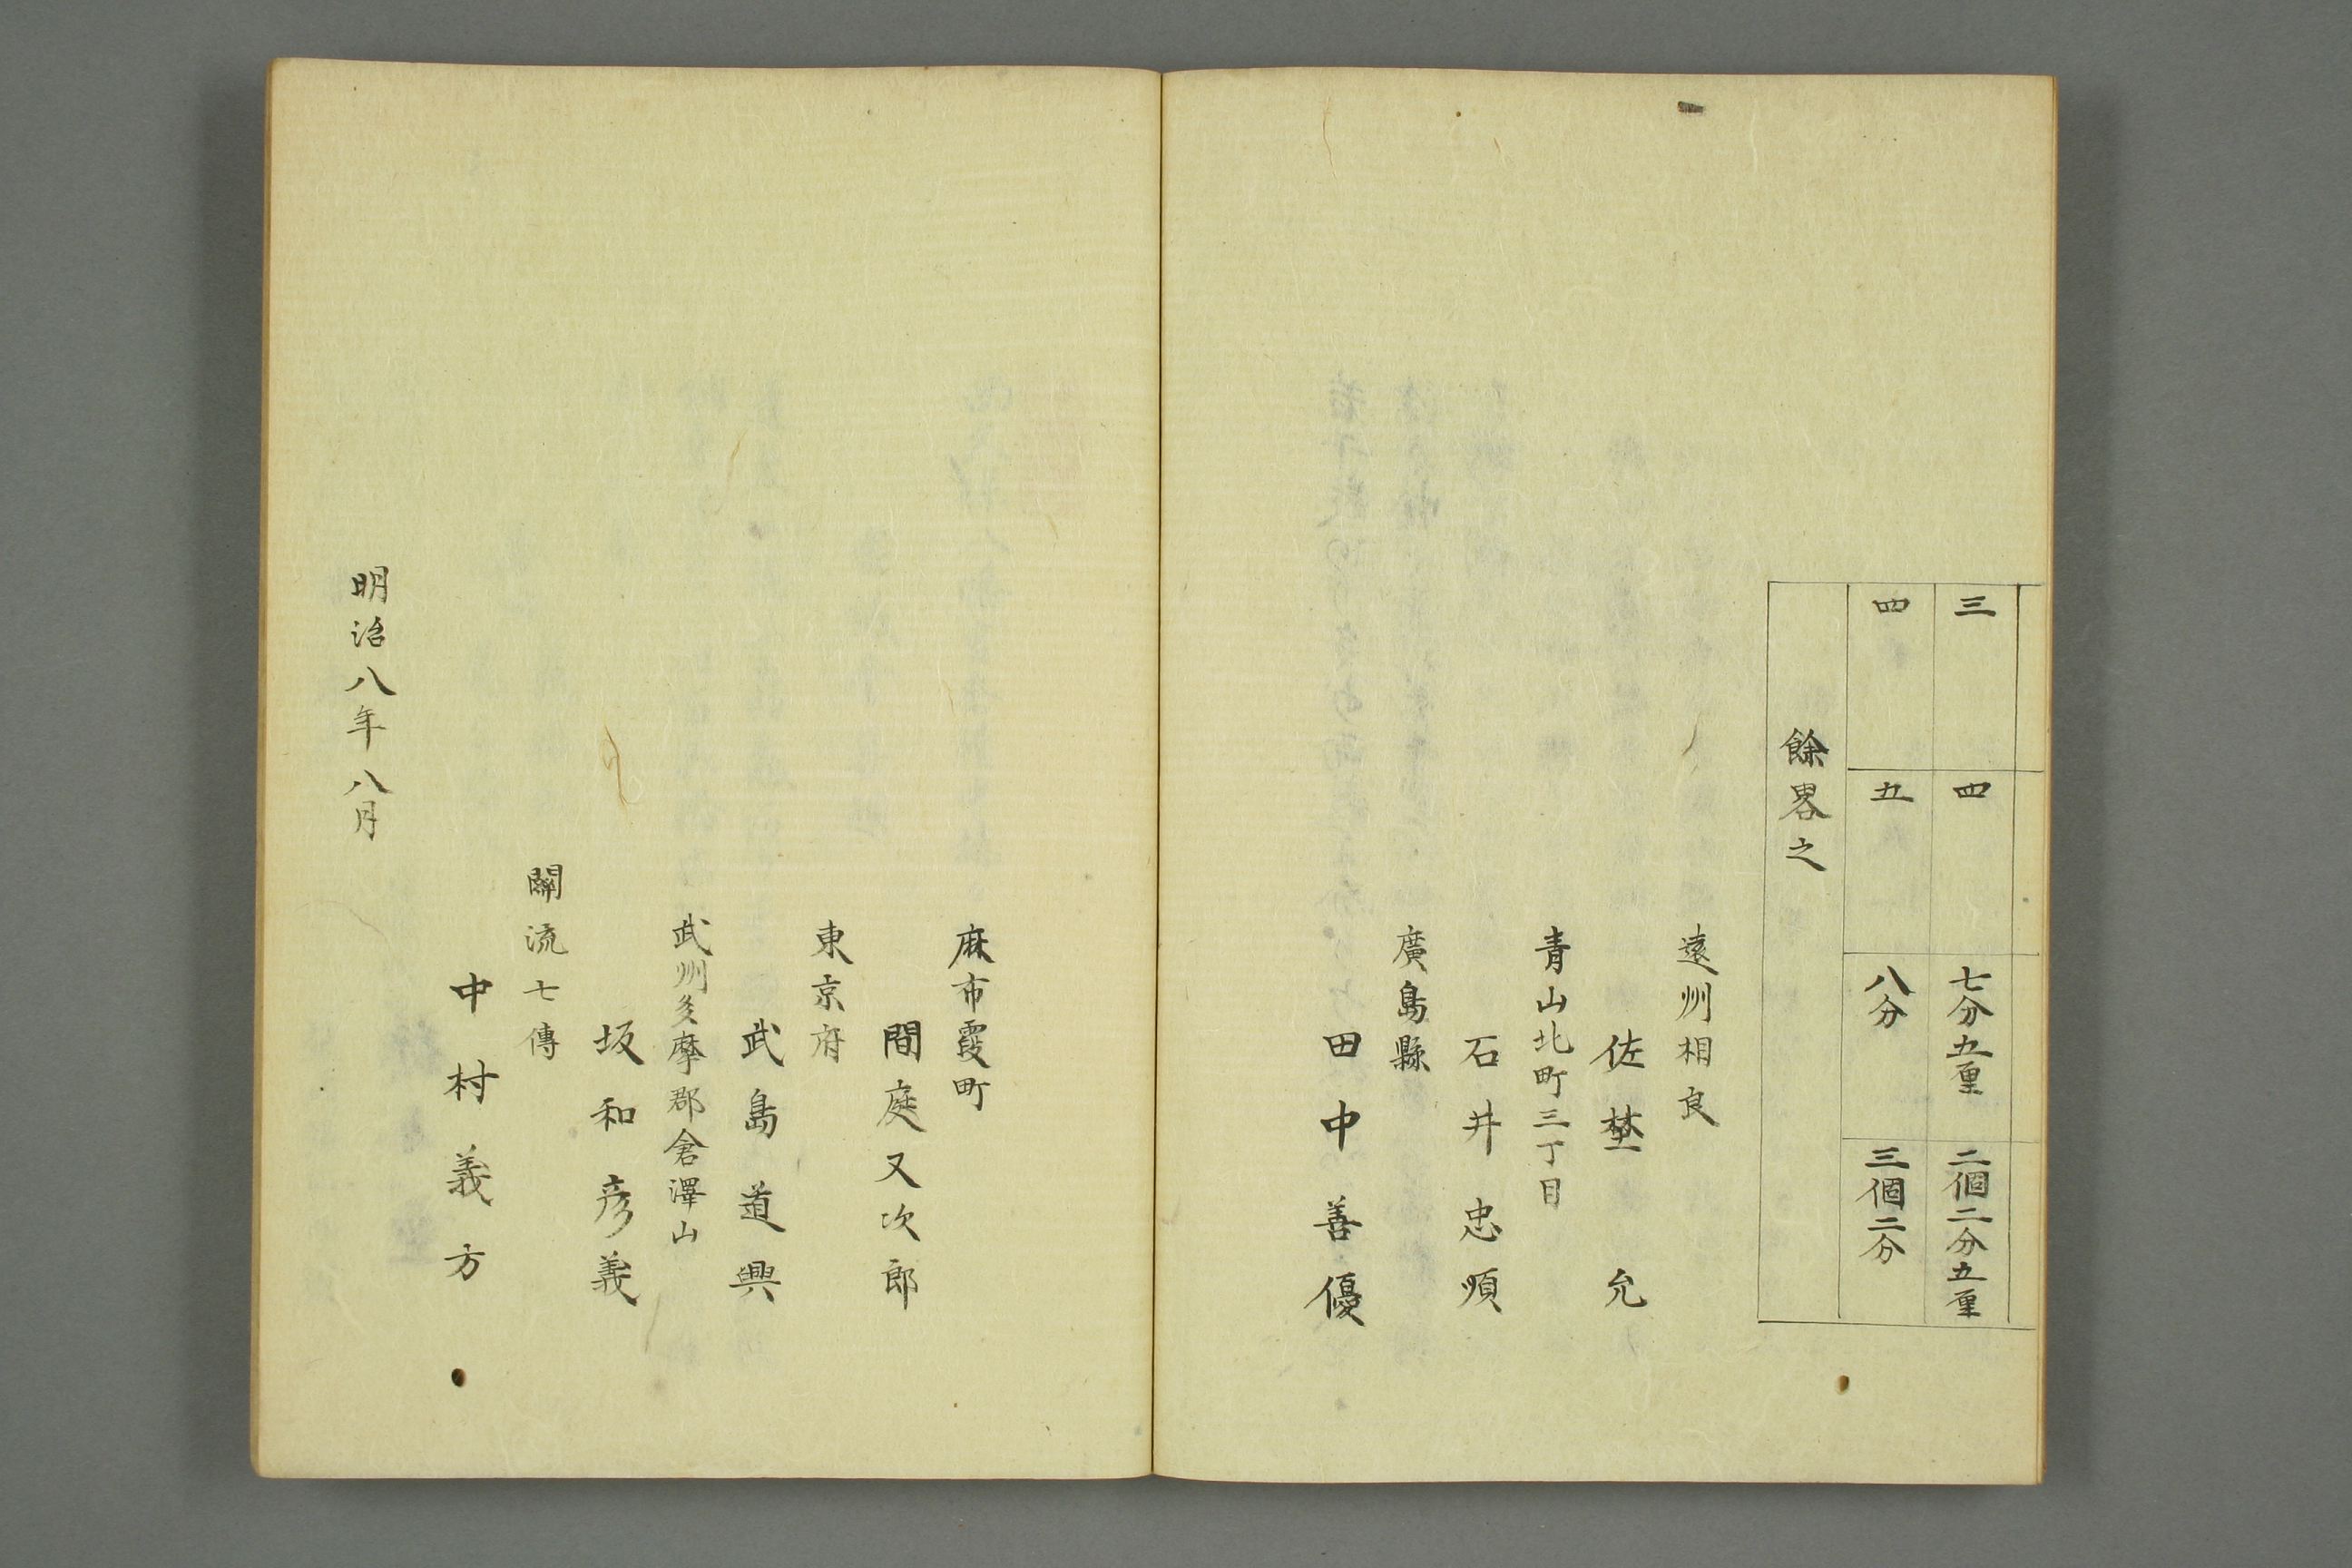 三 四 七分五厘 二個二分五厘
四 五 八分 三個二分
餘畧之
遠州相良
佐埜允
青山北町三丁目
石井忠順
廣島縣
田中善優
麻布霞町
間庭又次郎
東京府
武島道興
武州多摩郡倉澤山
坂和彦義
關流七傳
中村義方
明治八年八月